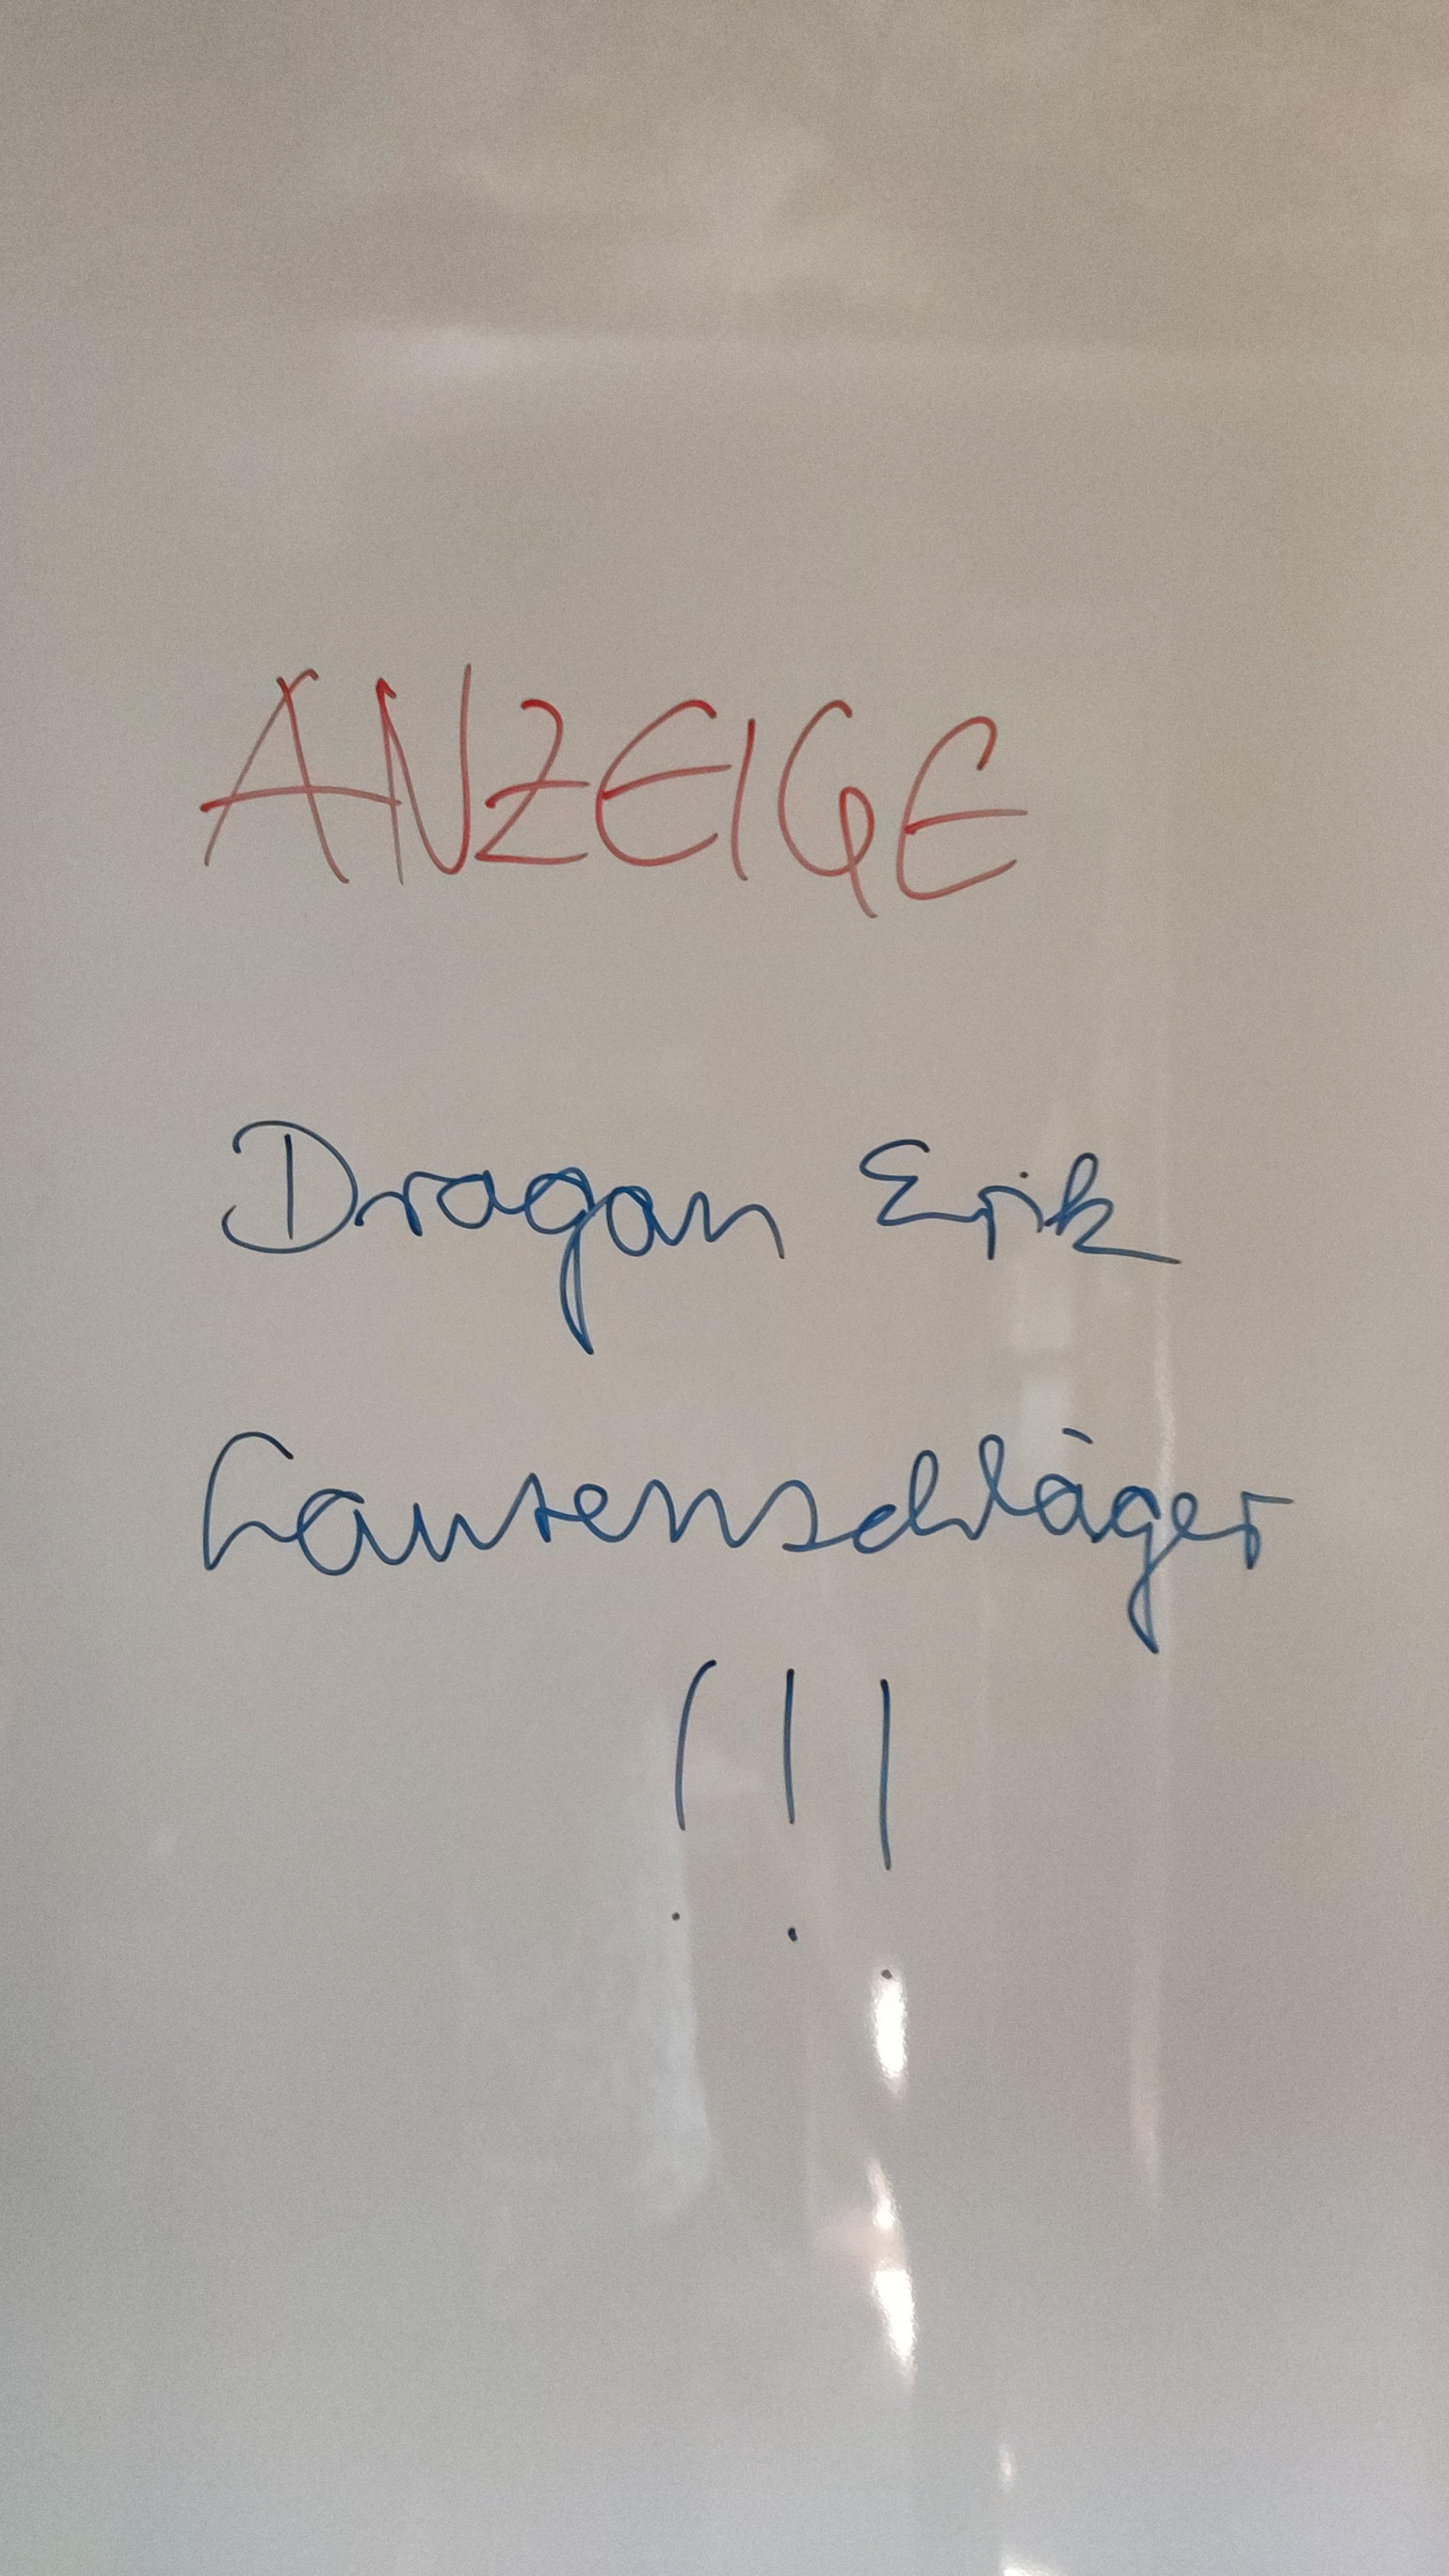 ANZEIGE
Dragan Erik
Lautenschläger
!!!